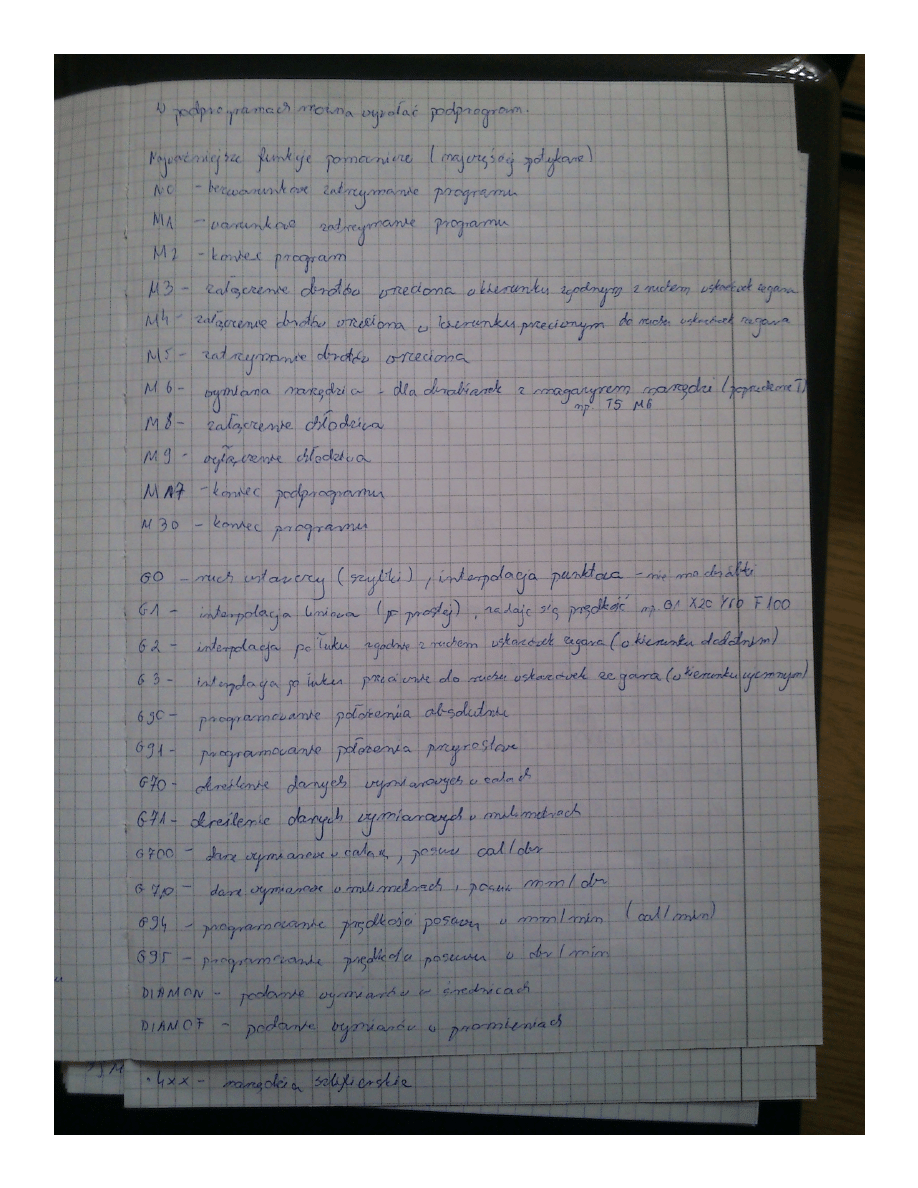 W podprogramach można wywołać podprogram.
Najważniejsze funkcje pomocnicze (najczęściej spotykane)
M0 - bezwarunkowe zatrzymanie programu
M1 - warunkowe zatrzymanie programu
M2 - koniec program
M3 - załączenie obrotów wrzeciona w kierunku zgodnym z ruchem wskazówek zegara
M4 - załączenie obrotów wrzeciona w kierunku przeciwnym do ruchu wskazówek zegara
M5 - zatrzymanie obrotów wrzeciona
M6 - wymiana narzędzia - dla obrabiarek z magazynem narzędzi (poprzedzone T)
np. T5 M6
M8 - załączenie chłodziwa
M9 - wyłączenie chłodziwa
M17 - koniec podprogramu
M30 - koniec programu
G0 - ruch ustawczy (szybki), interpolacja punktowa - nie ma obróbki
G1 - interpolacja liniowa (po prostej), nadaje się prędkość np. G1 X20 Y10 F100
G2 - interpolacja po łuku zgodnie z ruchem wskazówek zegara (w kierunku dodatnim)
G3 - interpolacja po łuku przeciwnie do ruchu wskazówek zegara (w kierunku ujemnym)
G90 - programowanie położenia absolutne
G91 - programowanie położenia przyrostowe
G70 - określenie danych wymiarowych w calach
G71 - określenie danych wymiarowych w milimetrach
G700 - dane wymiarowe w calach, posuw cal/obr
G710 - dane wymiarowe w milimetrach, posuw mm/obr
G94 - programowanie prędkości posuwu w mm/min (cal/min)
G95 - programowanie prędkości posuwu w obr/min
DIAMON - podanie wymiarów w średnicach
DIAMOF - podanie wymiarów w promieniach
4xx - narzędzia szlifierskie